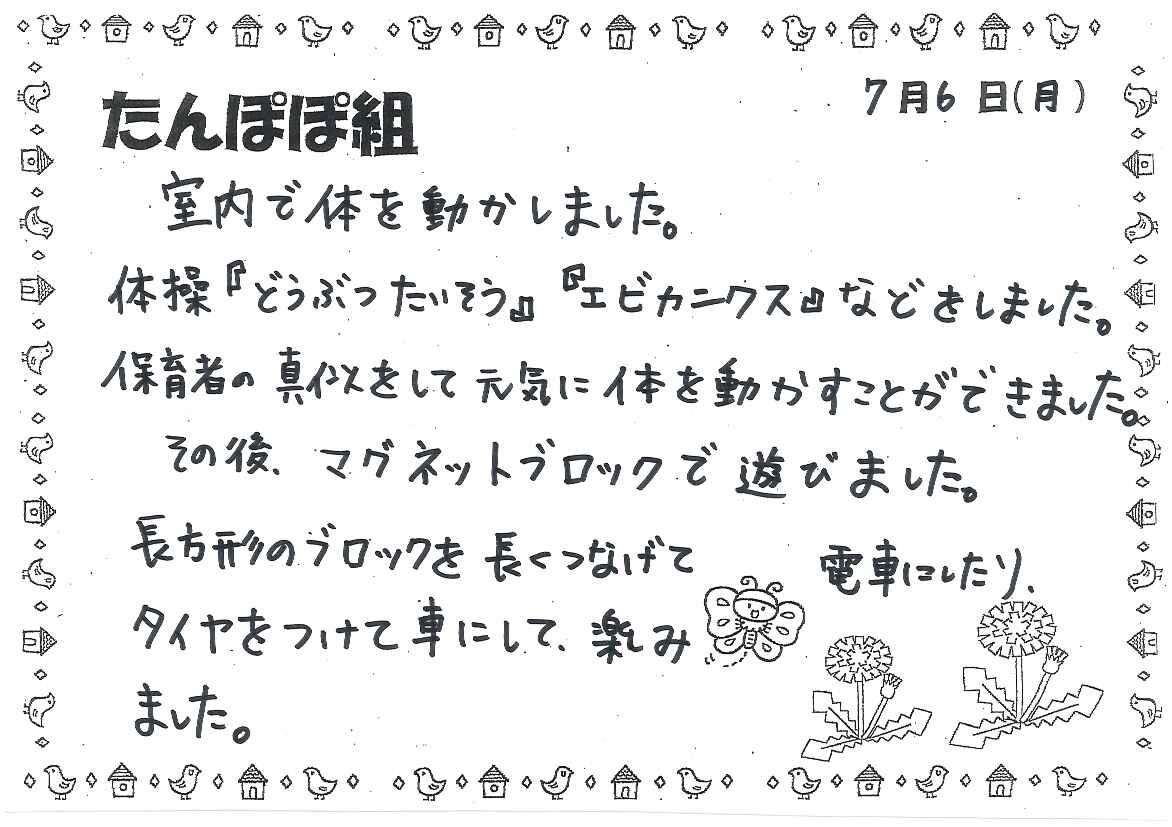 7月6日(月)
たんぽぽ組
室内で体を動かしました。
体操『どうぶつたいそう』『エビカニクス』などをしました。
保育者の真似をして元気に体を動かすことができました。
その後、マグネットブロックで遊びました。
長方形のブロックを長くつなげて 電車にしたり、
タイヤをつけて車にして、楽しみ
ました。